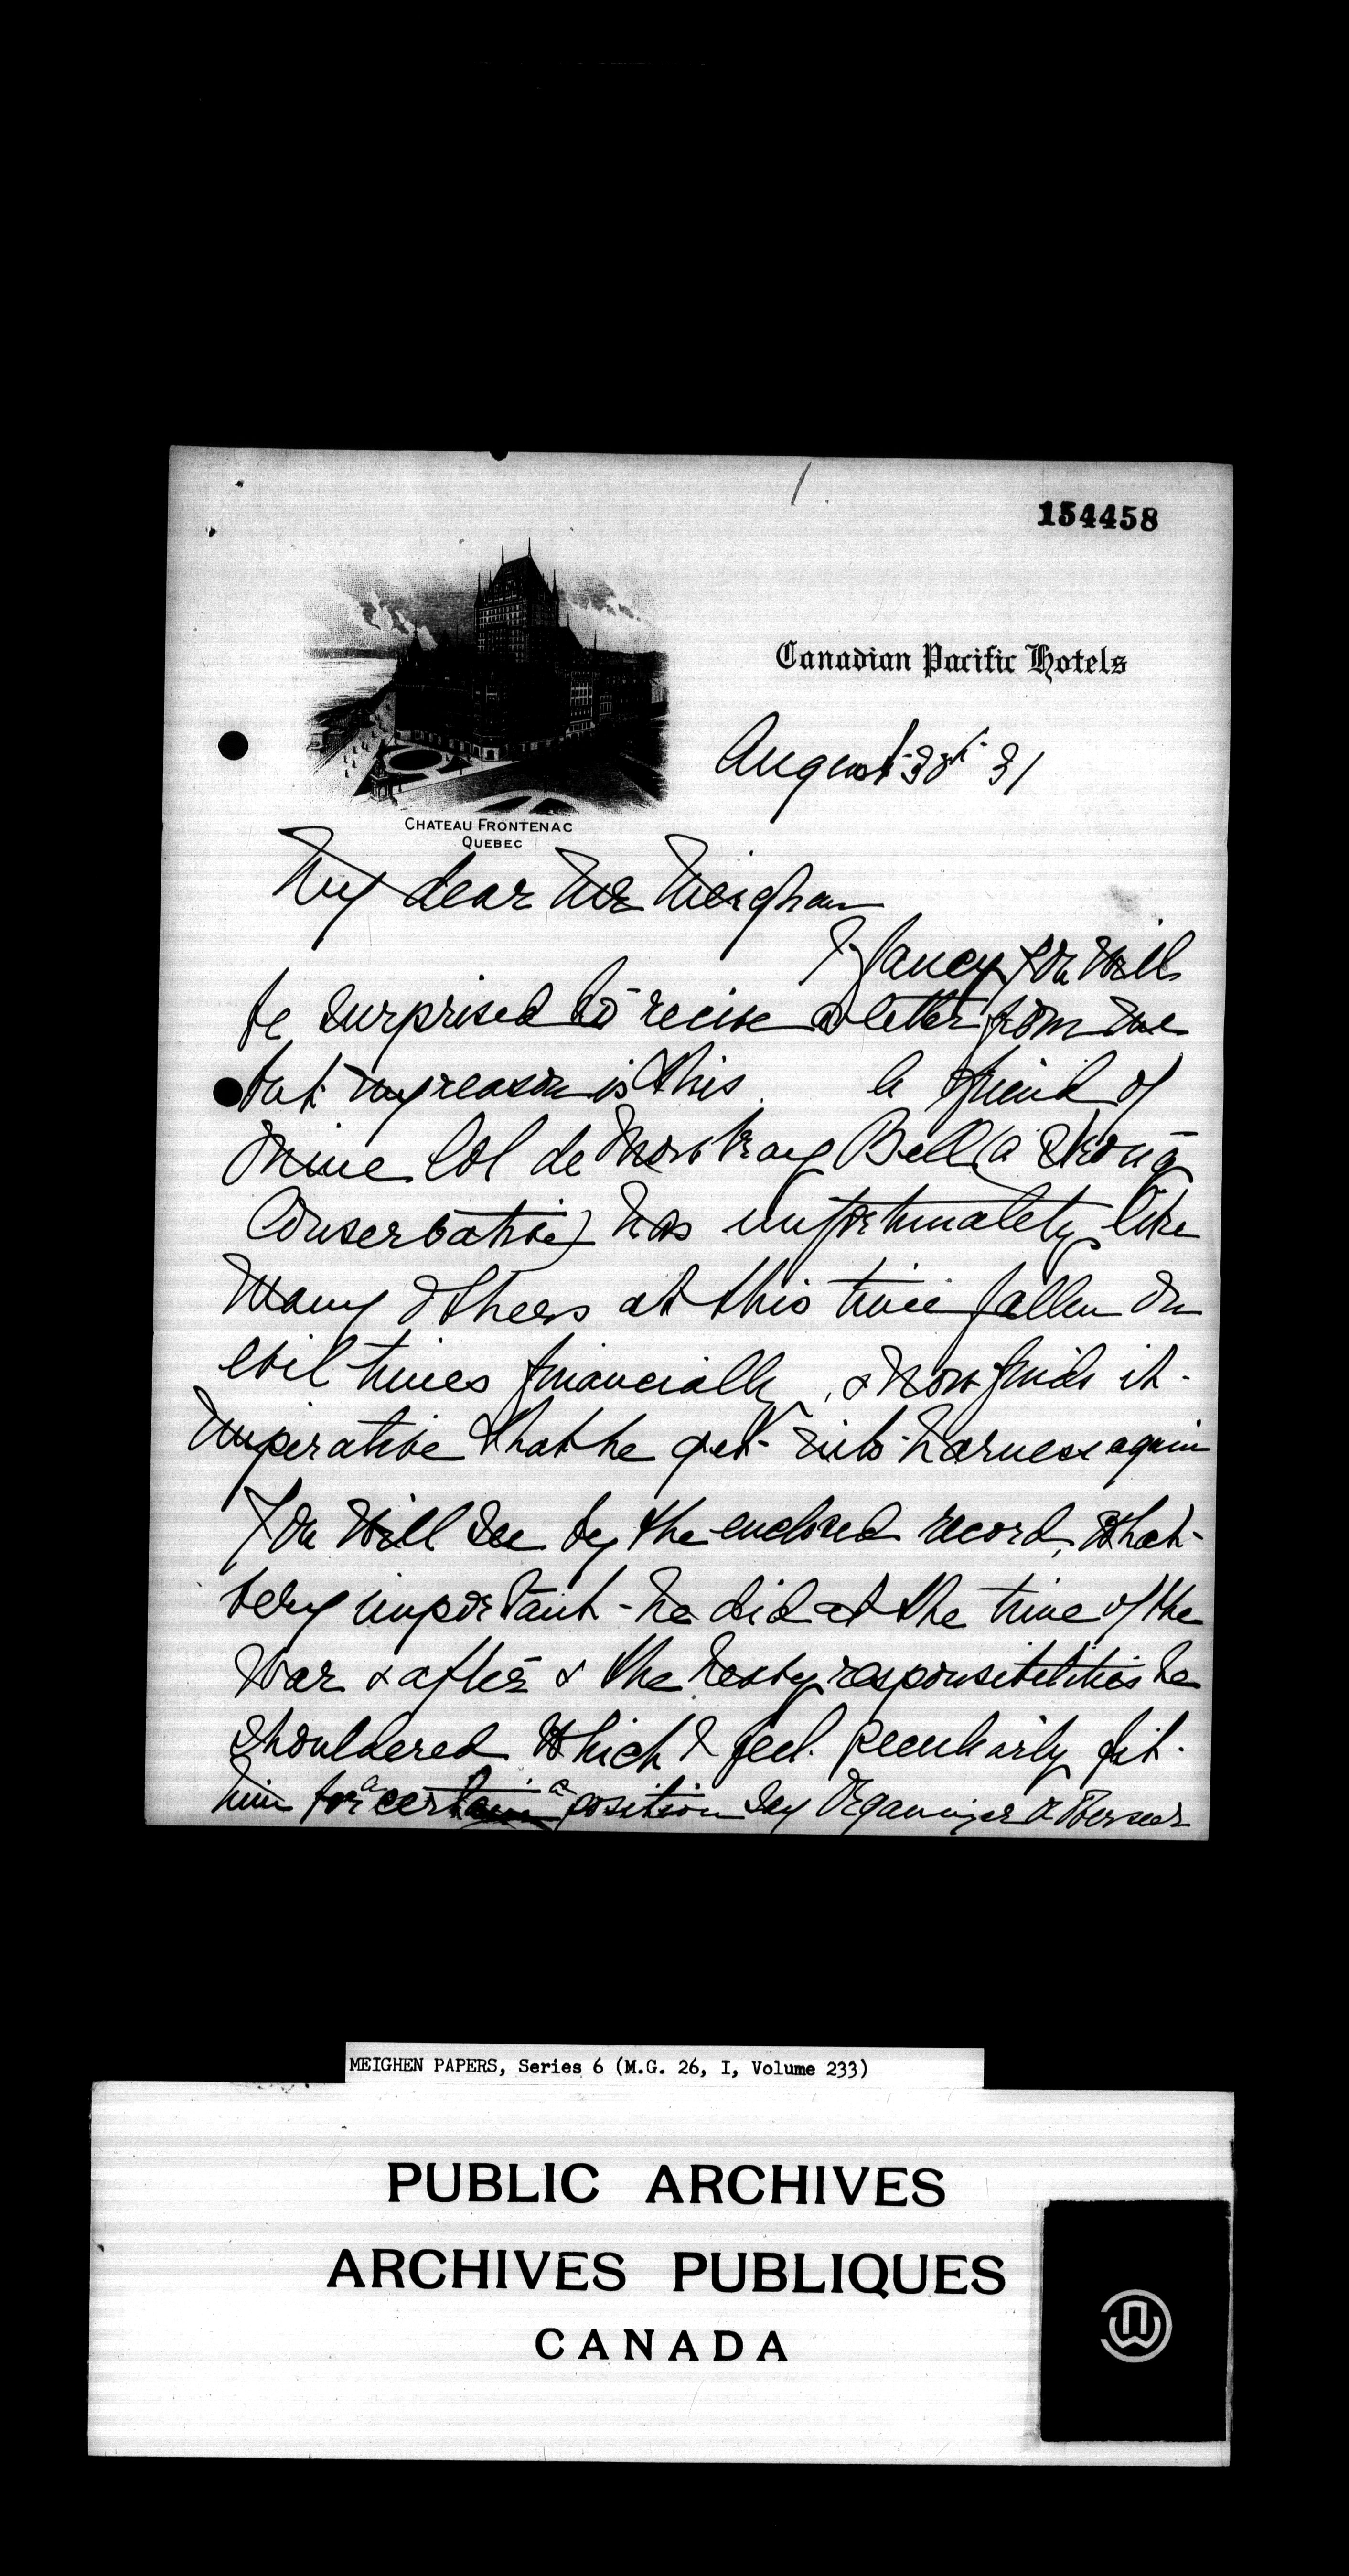 1
154458
Canadian Pacific Hotels
CHATEAU FRONTENAC
QUEBEC
August 30th 31
My dear Mr Meighan
I fancy you will
be surprised to recive a letter from me
but my reason is this. A friend of
mine Col de Mowbray Bell (a strong
Conservative) has unfortunately, like
many others at this time fallen on
evil times financially, & now finds it
imperative that he get into harness again
You will see by the enclosed record, what
very important he did at the time of the
War & after & the heavy responsibilities he
shouldered which I feel peculiarly fit
him for a certain a position say Organizer or Overseer
MEIGHEN PAPERS, Series 6 (M.G. 26, I, Volume 233)
PUBLIC ARCHIVES
ARCHIVES PUBLIQUES
CANADA